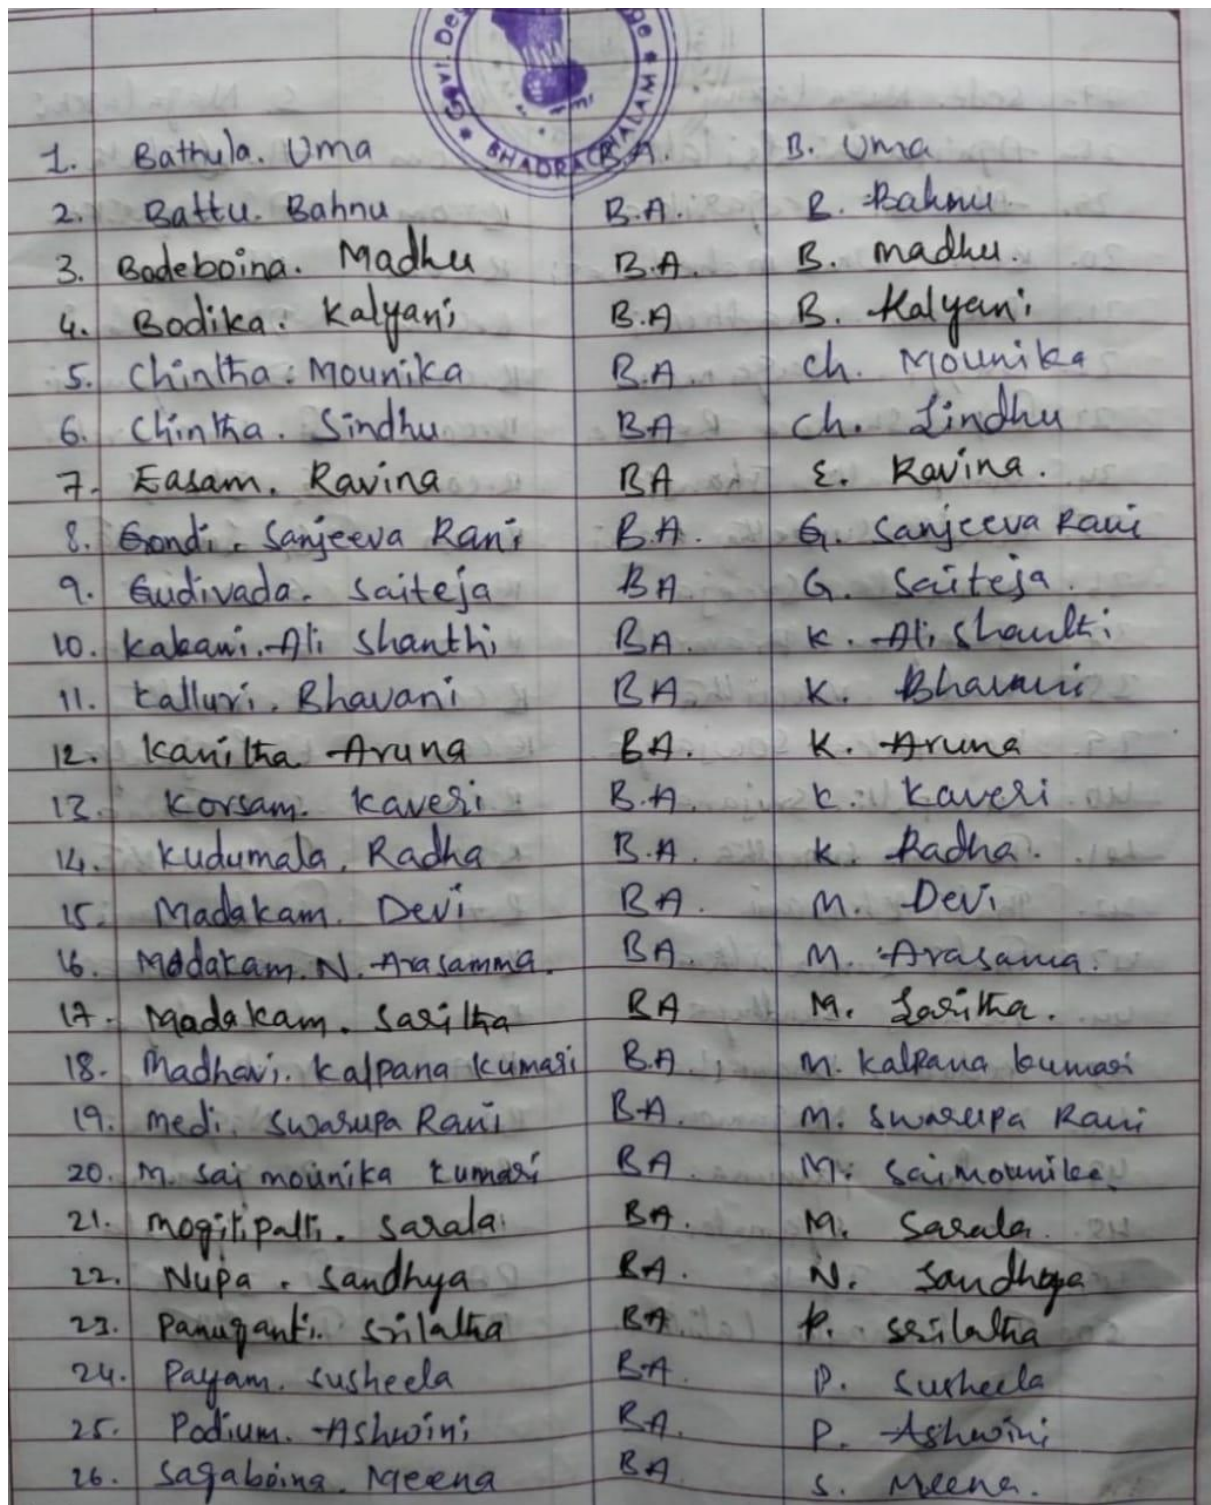 Govt. De ge
BHADRACHALAM
1. Bathula. Uma B.A. B. Uma
2. Battu. Bahnu B.A. B. Bahnu
3. Bodeboina. Madhu B.A. B. Madhu.
4. Bodika. Kalyani B.A B. Kalyani
5. Chintha. Mounika B.A Ch. Mounika
6. Chintha. Sindhu BA Ch. Sindhu
7. Easam. Ravina BA E. Ravina.
8. Gondi. Sanjeeva Rani B.A. G. Sanjeeva Rani
9. Gudivada. Saiteja BA G. Saiteja.
10. Kakani. Ali Shanthi BA. K. Ali Shanthi
11. Kalluri. Bhavani BA. K. Bhavani
12. Kanitha Aruna BA. K. Aruna
13. Korsam. Kaveri B.A. K. Kaveri
14. Kudumala. Radha B.A. K. Radha.
15. Madakam. Devi BA. M. Devi
16. Madakam. N. Arasamma. BA. M. Arasama.
17. Madakam. Saritha BA M. Saritha.
18. Madhavi. Kalpana Kumari B.A. M. Kalpana Kumari
19. Medi. Swarupa Rani B.A. M. Swarupa Rani
20. M. Sai mounika Kumari BA. M. Sai mounika.
21. Mogilipalli. Sarala BA. M. Sarala.
22. Nupa. Sandhya BA. N. Sandhya
23. Panuganti. Srilatha BA. P. Srilatha
24. Payam. Susheela B.A. P. Susheela
25. Podium. Ashwini BA. P. Ashwini
26. Sagaboina. Meena BA S. Meena.